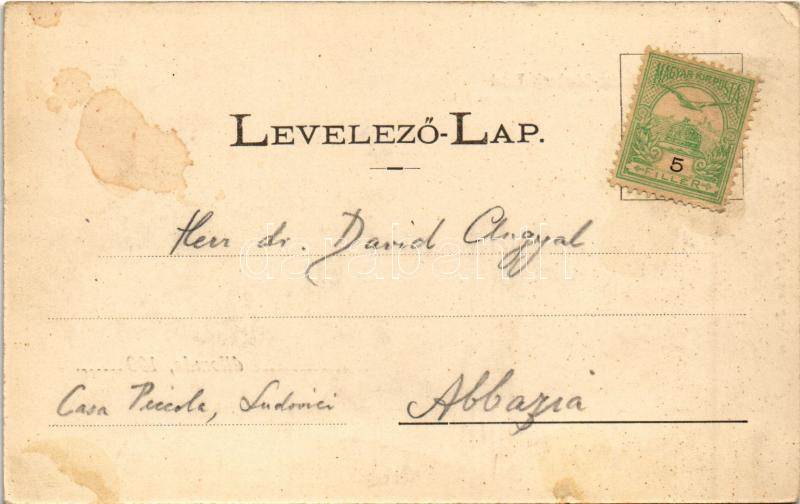 LEVELEZŐ-LAP.
MAGYAR KIR. POSTA
5
FILLÉR
Herr dr. David Angyal
darabanth
Casa Piccola, Ludovici
Abbazia